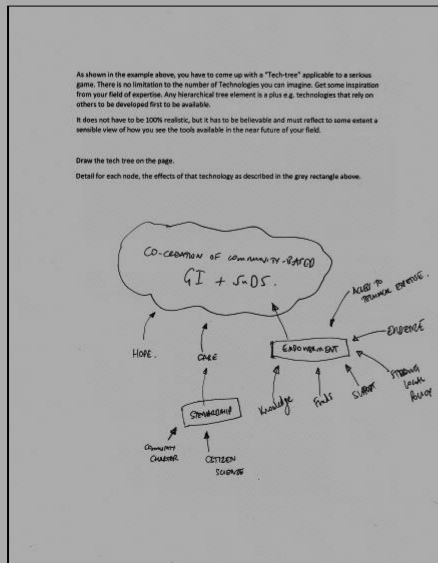 As shown in the example above, you have to come up with a "Tech-tree" applicable to a serious
game. There is no limitation to the number of Technologies you can imagine. Get some inspiration
from your field of expertise. Any hierarchical tree element is a plus e.g. technologies that rely on
others to be developed first to be available.
It does not have to be 100% realistic, but it has to be believable and must reflect to some extent a
sensible view of how you see the tools available in the near future of your field.
Draw the tech tree on the page.
Detail for each node, the effects of that technology as described in the grey rectangle above.
CO-CREATION OF COMMUNITY-BASED
GI + SuDS.
ACCESS TO
TECHNICAL EXPERTISE.
EVIDENCE
EMPOWERMENT
HOPE.
CARE
STRONG
LOCAL
POLICY
Knowledge
Funds
STEWARDSHIP
COMMUNITY
CHARTER
CITIZEN
SCIENCE